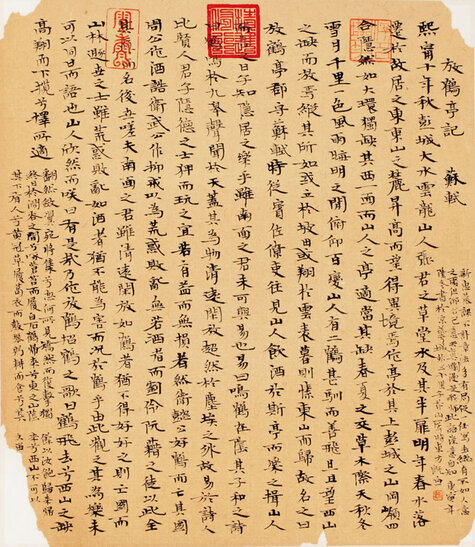 放鶴亭記 蘇軾
熙寧十年秋彭城大水雲龍山人張君之草堂水及其半扉明年春水落
遷於故居之東東山之麓昇高而望得異境焉作亭於其上彭城之山岡嶺四
合隱然如大環獨缺其西一面而山人之亭適當其缺春夏之交草木際天秋冬
雪月千里一色風雨晦明之間俯仰百變山人有二鶴甚馴而善飛旦望西山
之缺而放焉縱其所如或立於坡田或翔於雲表暮則傃東山而歸故名之曰
放鶴亭郡守蘇軾時從賓僚往見山人飲酒於斯亭而樂之揖山人
而告之曰子知隱居之樂乎雖南面之君未可與易也易曰鳴鶴在陰其子和之詩
曰鶴鳴於九皋聲聞於天蓋其為物清遠閒放超然於塵埃之外故易詩人
比賢人君子隱德之士狎而玩之宜若有益而無損者然衛懿公好鶴而亡其國
周公作酒誥衛武公作抑戒以為荒惑敗亂無若酒者而劉伶阮籍之徒以此全
其真而名後世嗟夫南面之君雖清遠閒放如鶴者猶不得好好之則亡國而
山林遯世之士雖荒惑敗亂如酒者猶不能為害而況於鶴乎由此觀之其為樂未
可以同日而語也山人欣然而笑曰有是哉乃作放鶴招鶴之歌曰鶴飛去兮西山之缺
高翔而下覽兮擇所適
翻然斂翼宛將集兮忽何所見矯然而復擊獨
終日於澗谷之間兮啄蒼苔而履白石鶴歸來兮東山之陰
其下有人兮黃冠草屨葛衣而鼓琴躬耕而食兮其
餘以汝飽歸來歸來兮西山不可以久留